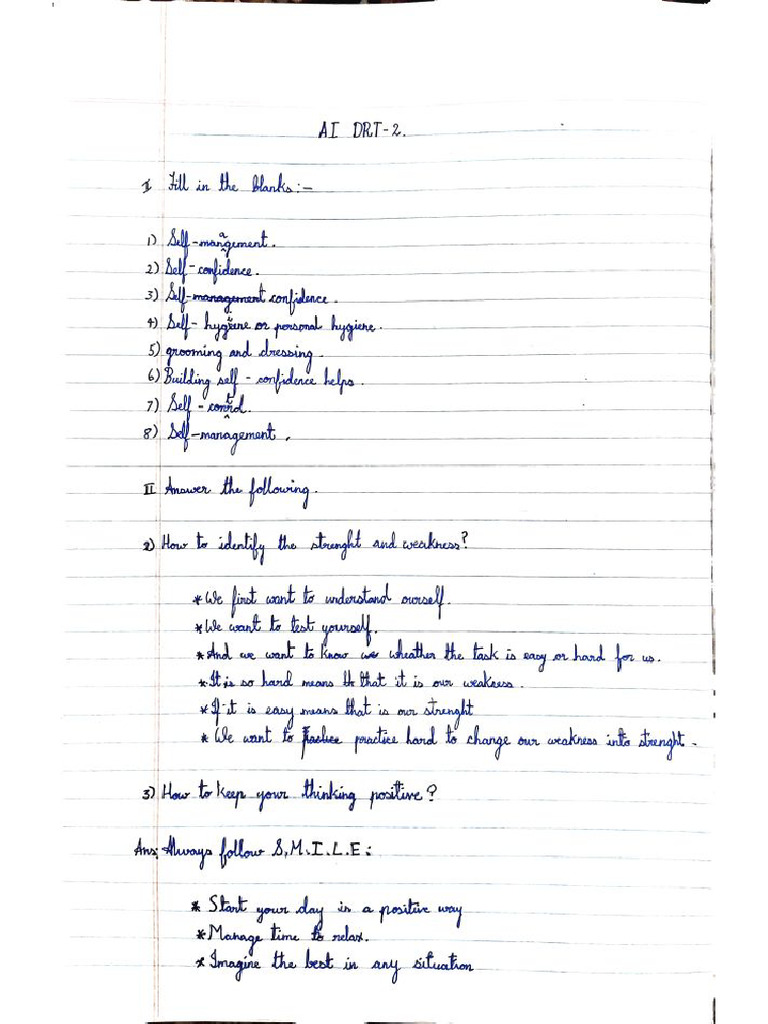 AI DRT-2.
I Fill in the blanks:-
1) Self-management.
2) Self-confidence.
3) Self-management confidence.
4) Self-hygiene or personal hygiene.
5) grooming and dressing.
6) Building self-confidence helps.
7) Self-control.
8) Self-management.
II Answer the following.
2) How to identify the strenght and weakness?
*We first want to understand ourself.
*We want to test yourself.
*And we want to know we wheather the task is easy or hard for us.
*It is so hard means th that it is our weakness.
*If it is easy means that is our strenght
*We want to Practice practice hard to change our weakness into strenght.
3) How to keep your thinking positive?
Ans: Always follow S.M.I.L.E:
* Start your day in a positive way
* Manage time to relax.
* Imagine the best in any situation